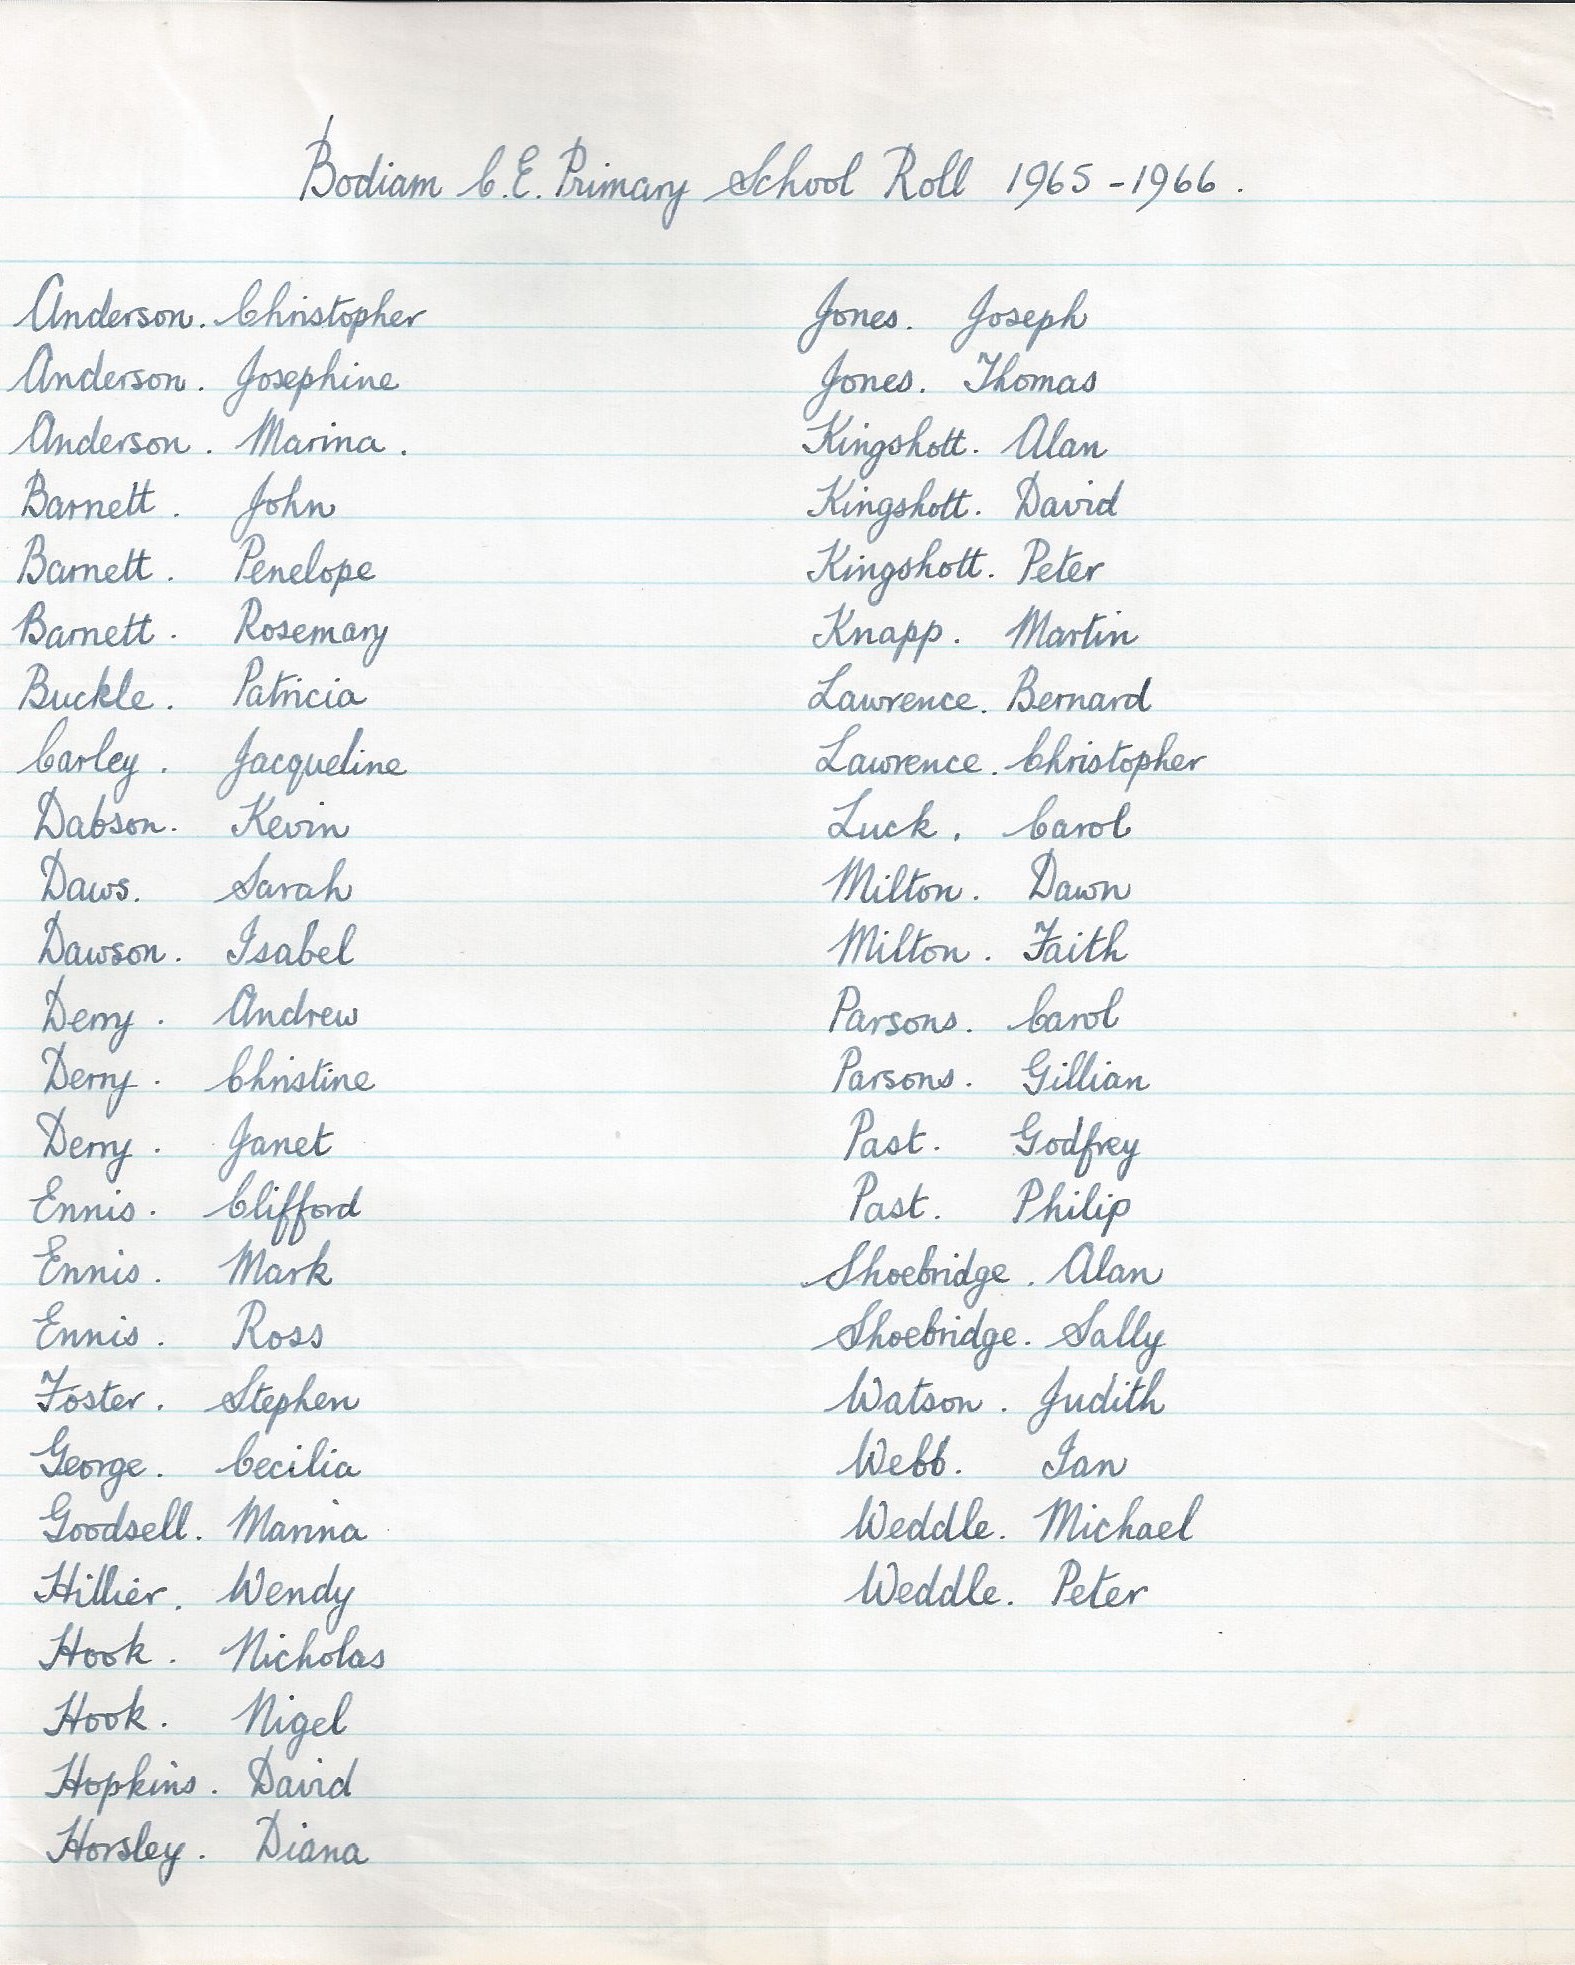 Bodiam C.E. Primary School Roll 1965-1966.
Anderson. Christopher
Anderson. Josephine
Anderson. Marina.
Barnett. John
Barnett. Penelope
Barnett. Rosemary
Buckle. Patricia
Carley. Jacqueline
Dabson. Kevin
Daws. Sarah
Dawson. Isabel
Derry. Andrew
Derry. Christine
Derry. Janet
Ennis. Clifford
Ennis. Mark
Ennis. Ross
Foster. Stephen
George. Cecilia
Goodsell. Marina
Hillier. Wendy
Hook. Nicholas
Hook. Nigel
Hopkins. David
Horsley. Diana
Jones. Joseph
Jones. Thomas
Kingshott. Alan
Kingshott. David
Kingshott. Peter
Knapp. Martin
Lawrence. Bernard
Lawrence. Christopher
Luck. Carol
Milton. Dawn
Milton. Faith
Parsons. Carol
Parsons. Gillian
Past. Godfrey
Past. Philip
Shoebridge. Alan
Shoebridge. Sally
Watson. Judith
Webb. Ian
Weddle. Michael
Weddle. Peter